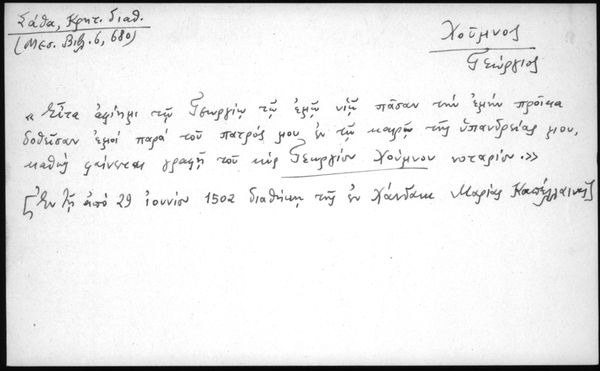 Σάθα, Κρητ. διαθ.
(Μεσ. Βιβλ. 6, 680)
Χοῦμνος
Γεώργιος
« Εἶτα ἀφίημι τῷ Γεωργίῳ τῷ ἐμῷ υἱῷ πᾶσαν τὴν ἐμὴν προῖκα
δοθεῖσαν ἐμοί παρά τοῦ πατρός μου ἐν τῷ καιρῷ τῆς ὑπανδρείας μου,
καθώς φαίνεται γραφῇ τοῦ κὺρ Γεωργίου Χούμνου νοταρίου.»
[Ἐν τῇ ἀπό 29 ἰουνίου 1502 διαθήκῃ τῆς ἐν Χάνδακι Μαρίας Καπελλαινας]